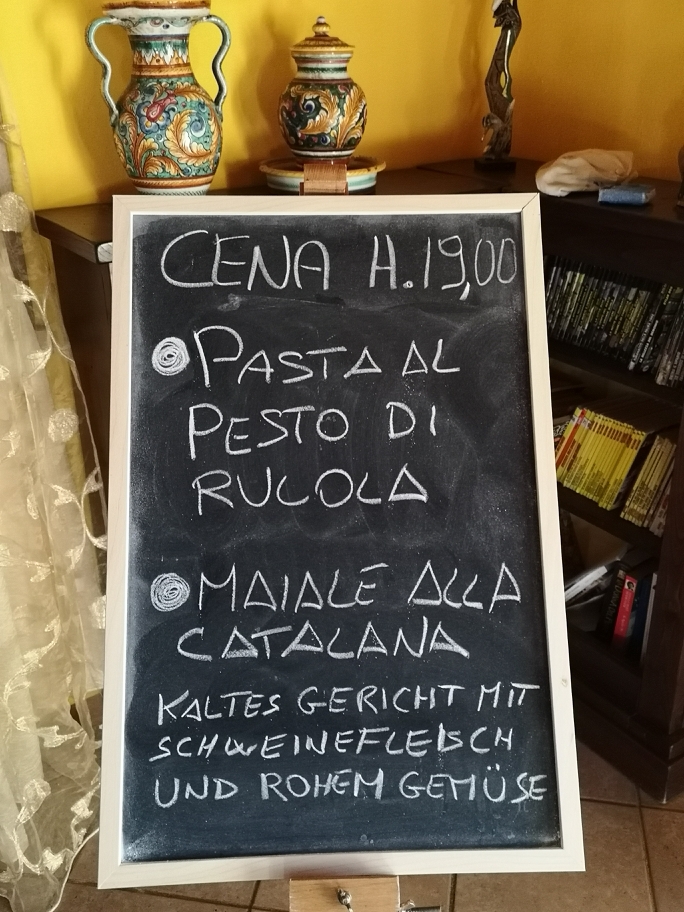 CENA H.19,00
PASTA AL
PESTO DI
RUCOLA
MAIALE ALLA
CATALANA
KALTES GERICHT MIT
SCHWEINEFLEISCH
UND ROHEM GEMÜSE